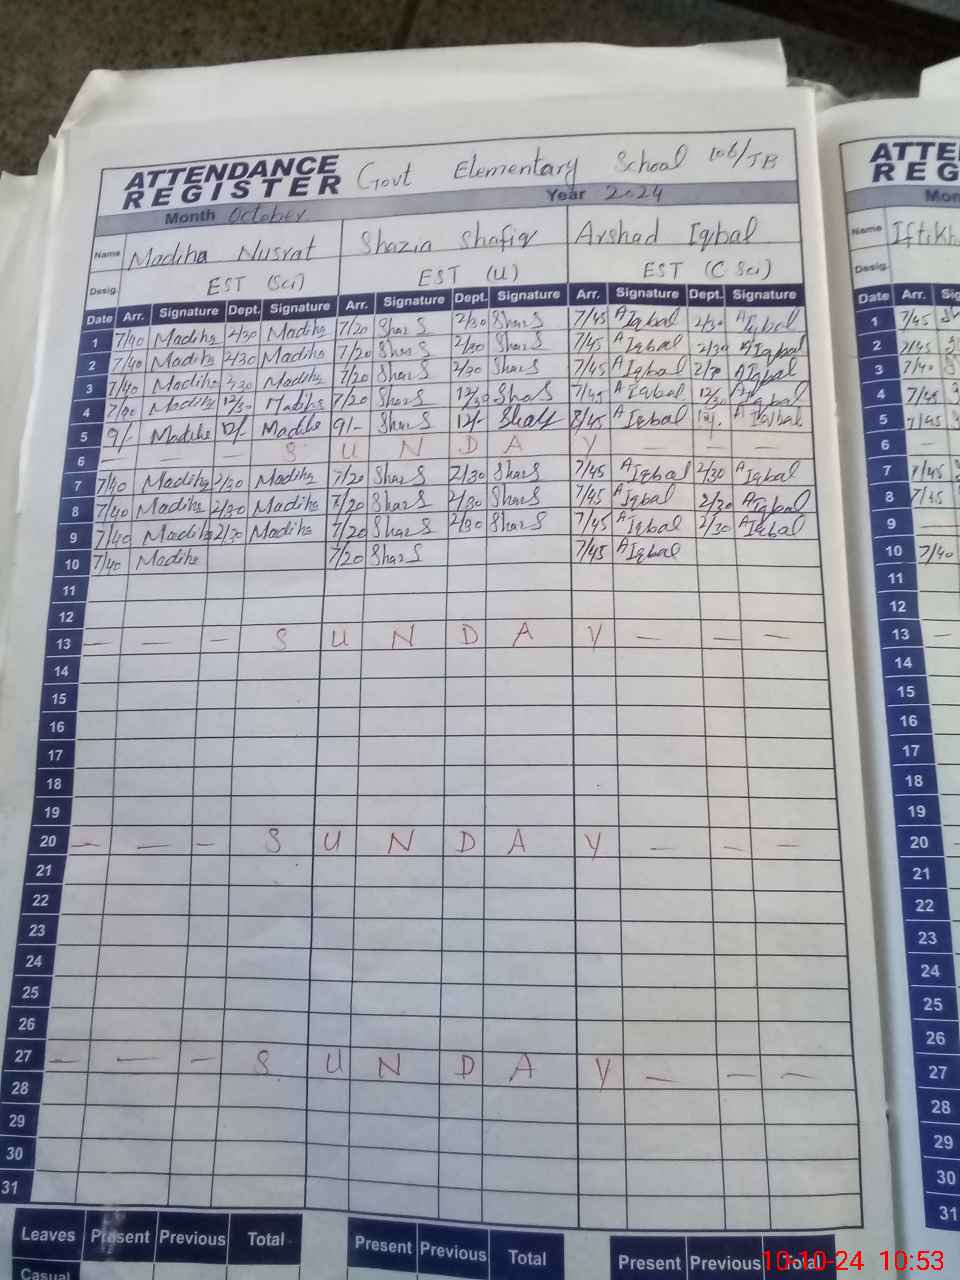 ATTENDANCE REGISTER Govt Elementary School 106/JB
Month October Year 2024
Name Madiha Nusrat Shazia Shafiq Arshad Iqbal
Desig. EST (Sci) EST (U) EST (C Sci)
Date Arr. Signature Dept. Signature Arr. Signature Dept. Signature Arr. Signature Dept. Signature
1 7/40 Madiha 2/30 Madiha 7/20 Shar S 2/30 Shar S 7/45 A Iqbal 2/30 A Iqbal
2 7/40 Madiha 2/30 Madiha 7/20 Shar S 2/30 Shar S 7/45 A Iqbal 2/30 A Iqbal
3 7/40 Madiha 2/30 Madiha 7/20 Shar S 2/30 Shar S 7/45 A Iqbal A Iqbal
4 7/40 Madiha 12/30 Madiha 7/20 Shar S 12/30 Shar S 7/45 A Iqbal 12/30 A Iqbal
5 9/- Madiha 12/- Madiha 9/- Shar S 12/- 8/45 A Iqbal A Iqbal
6 — — — S U N D A Y — — —
7 7/40 Madiha 2/30 Madiha 7/20 Shar S 2/30 Shar S 7/45 A Iqbal 2/30 A Iqbal
8 7/40 Madiha 2/30 Madiha 7/20 Shar S 2/30 Shar S 7/45 A Iqbal 2/30 A Iqbal
9 7/40 Madiha 2/30 Madiha 7/20 Shar S 2/30 Shar S 7/45 A Iqbal 2/30 A Iqbal
10 7/40 Madiha 7/20 Shar S 7/45 A Iqbal
11
12
13 — — — S U N D A Y — — —
14
15
16
17
18
19
20 — — — S U N D A Y — — —
21
22
23
24
25
26
27 — — — S U N D A Y — — —
28
29
30
31
Leaves Present Previous Total Present Previous Total Present Previous Total
Casual
Name
Desig.
Date Arr.
1 7/45
2 7/45
3 7/40
4 7/45
5 7/45
6 —
7 7/45
8 7/45
9 —
10 7/40
11
12
13 —
14
15
16
17
18
19
20 —
21
22
23
24
25
26
27 —
28
29
30
31
10-10-24 10:53